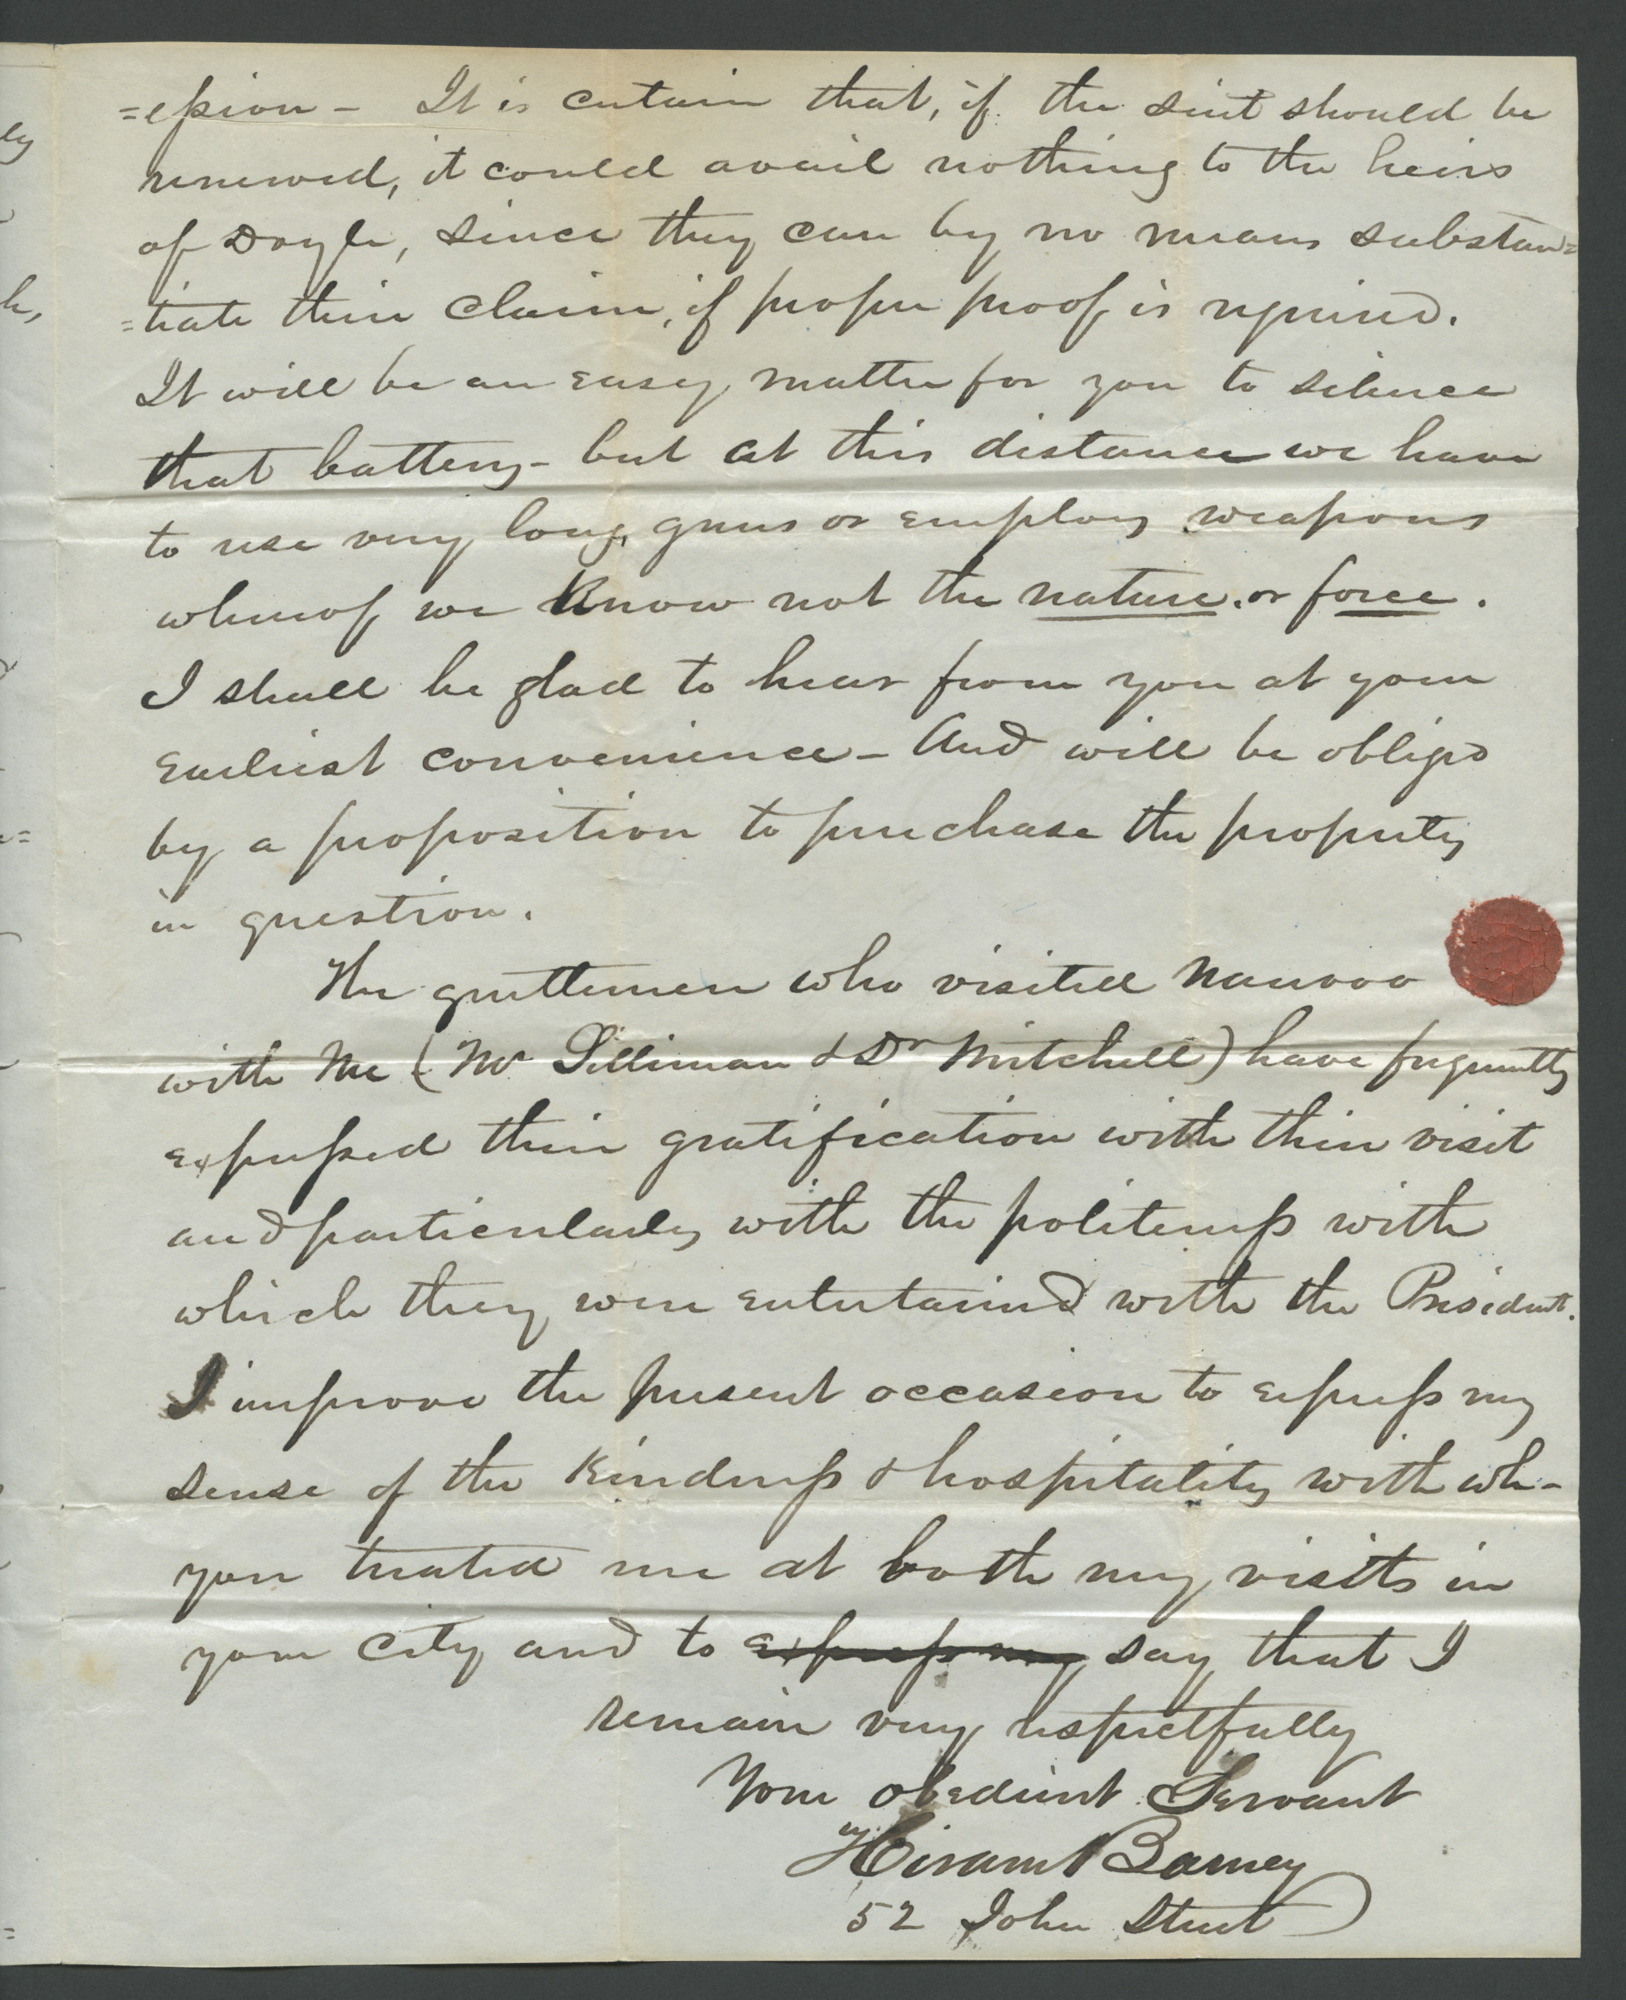 =ession – It is certain that, if the suit should be
renewed, it could avail nothing to the heirs
of Doyle, since they can by no means substan=
=tiate their claim, if proper proof is required.
It will be an easy matter for you to silence
that battery – but at this distance we have
to use very long guns or employ weapons
whereof we know not the nature or force.
I shall be glad to hear from you at your
earliest convenience – And will be obliged
by a proposition to purchase the property
in question.
The gentlemen who visited Nauvoo
with me (Mr Silliman & Dr Mitchell) have frequently
expressed their gratification with their visit
and particularly with the politeness with
which they were entertained with the President.
I improve the present occasion to express my
sense of the kindness & hospitality with wh–
you treated me at both my visits in
your city and to express my say that I
remain very respectfully
Your obedient Servant
Hiram Barney
52 John Street
ly
h,